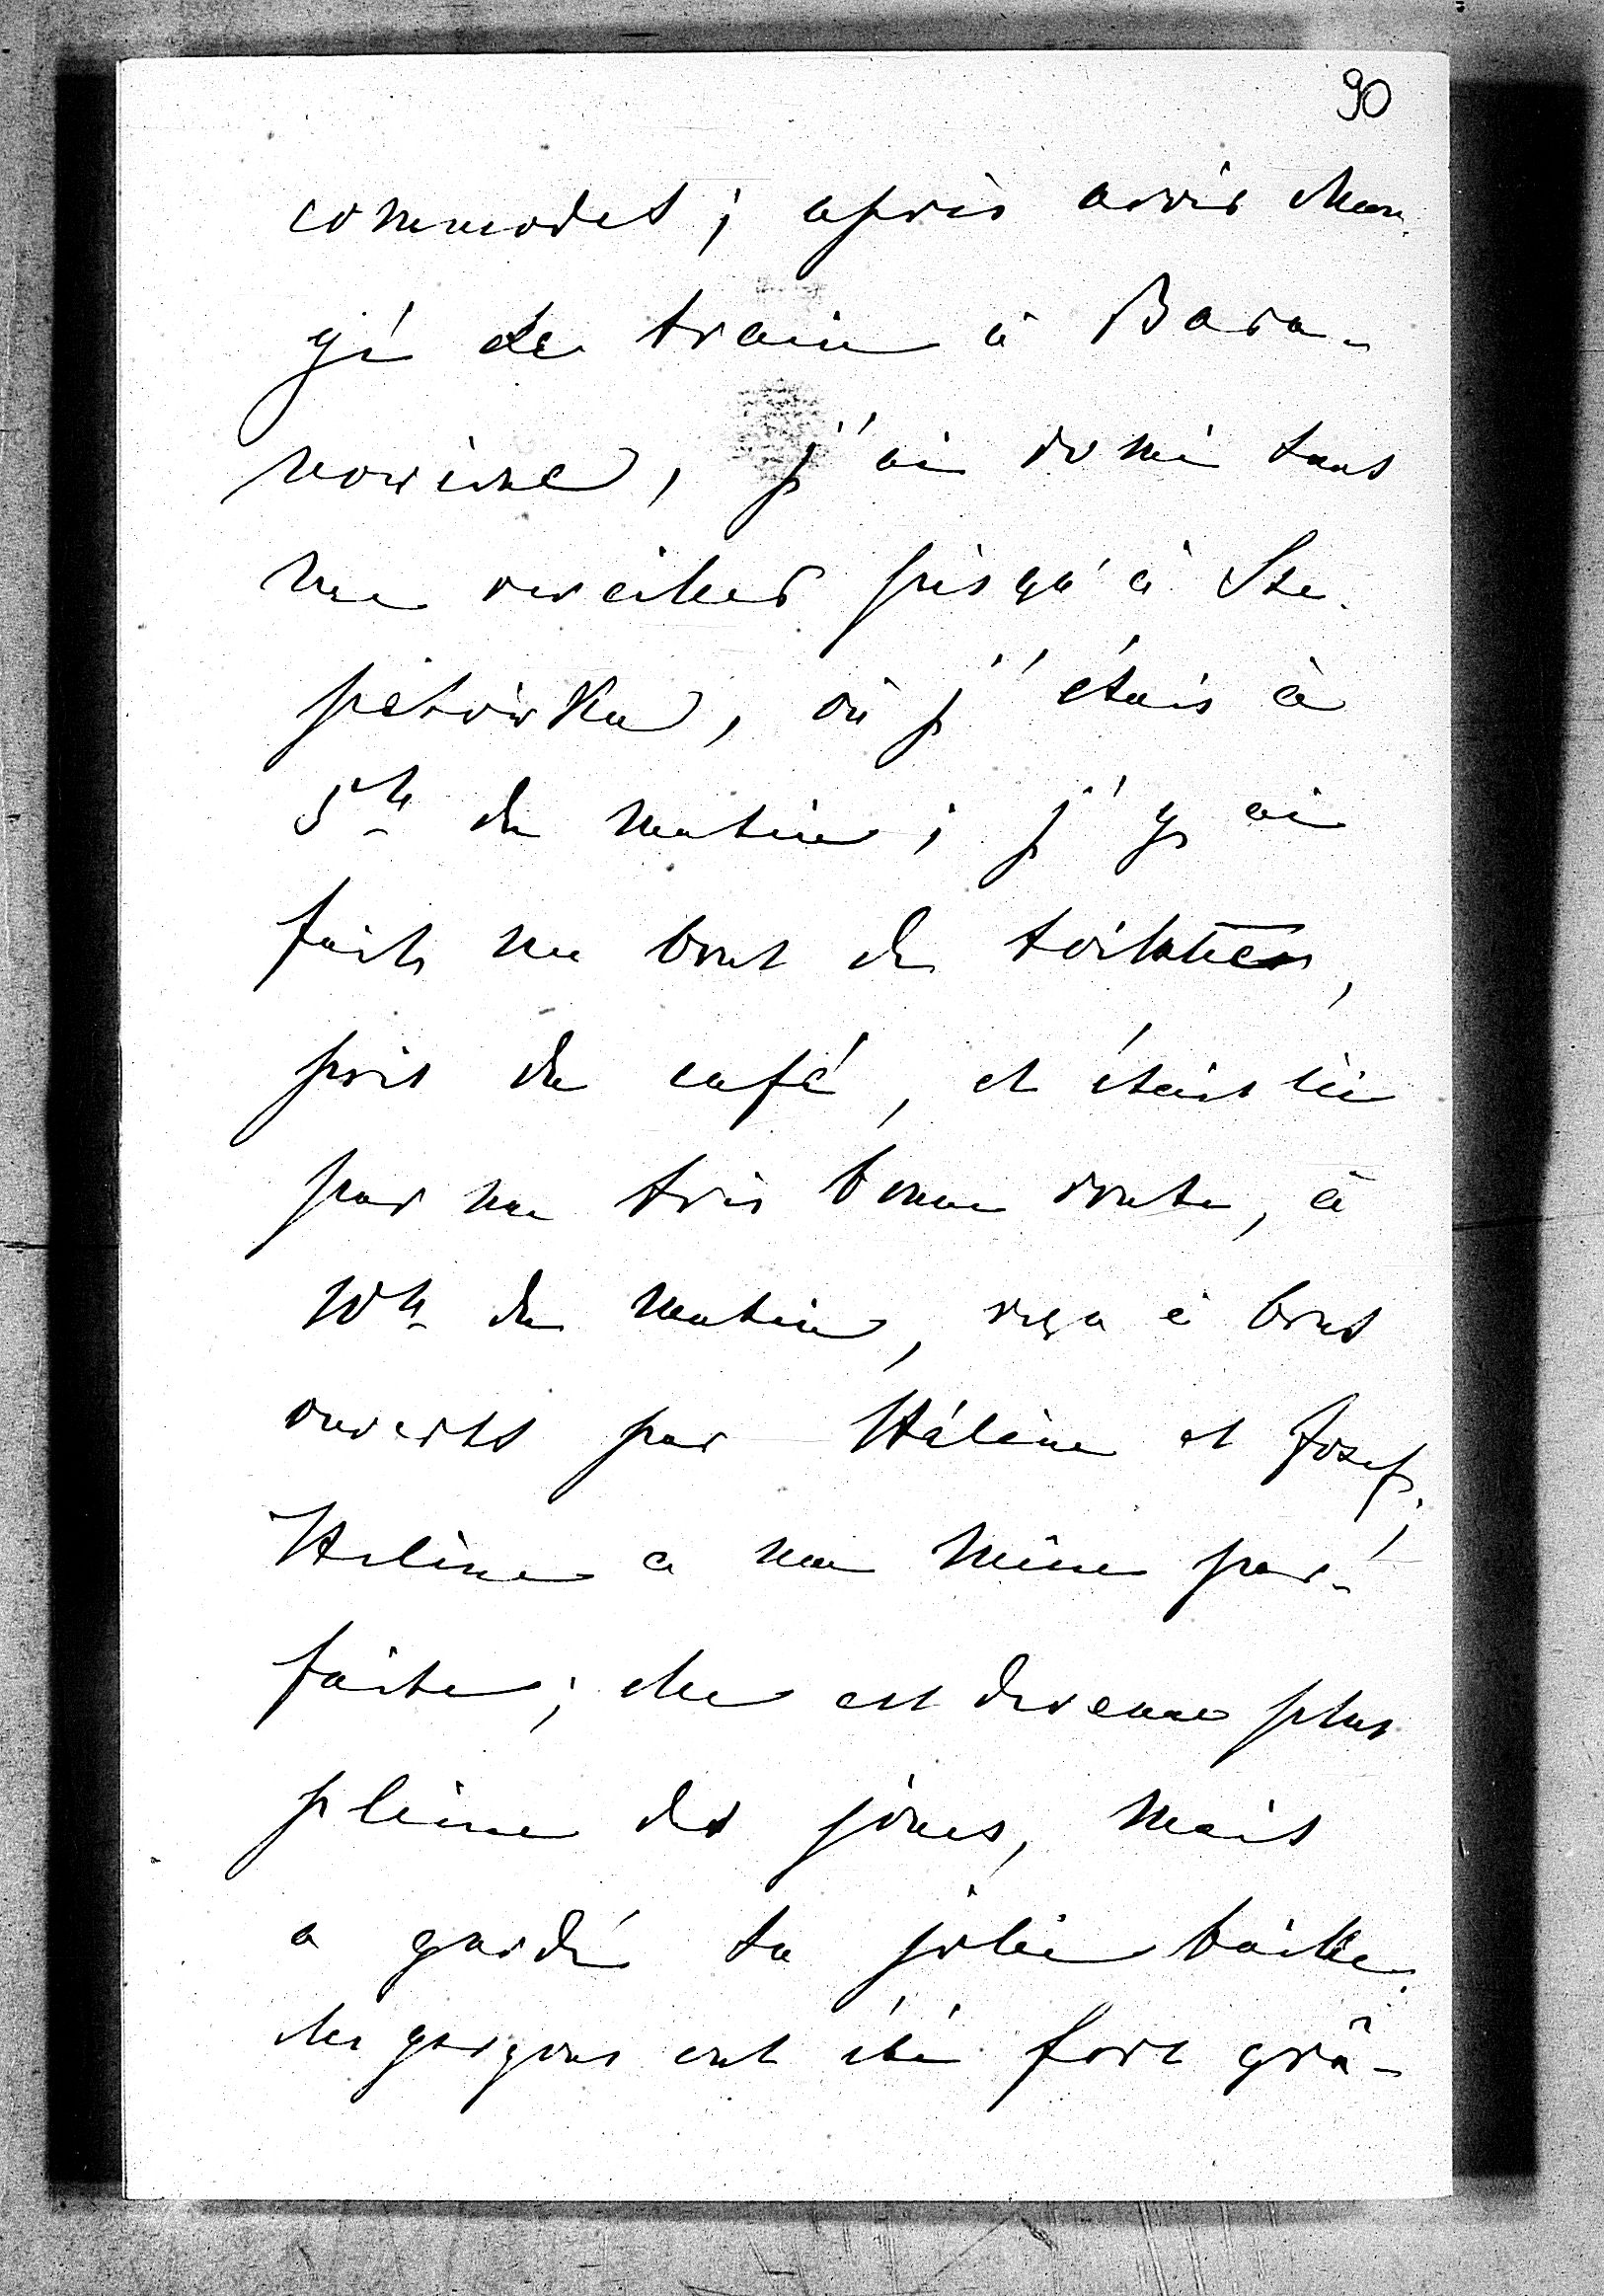 90
commodes; après avoir chan-
gé de train à Bara-
nowicze, j'ai dormi sans
me reveiller jusqu'à Sze-
petówka, où j'étais à
5h du matin; j'y ai
fait un bout de toilette,
pris du café, et étais ici
par une très bonne route, à
10h du matin, reçu à bras
ouverts par Hélène et Józef;
Hélène a une mine par-
faite; elle est devenue plus
pleine des joues, mais
a gardé sa jolie taille.
Les garçons ont été fort grâ-